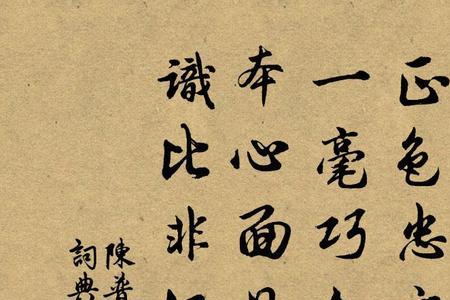 正色忠
一毫巧
本心面
識比非
陳普
詞典